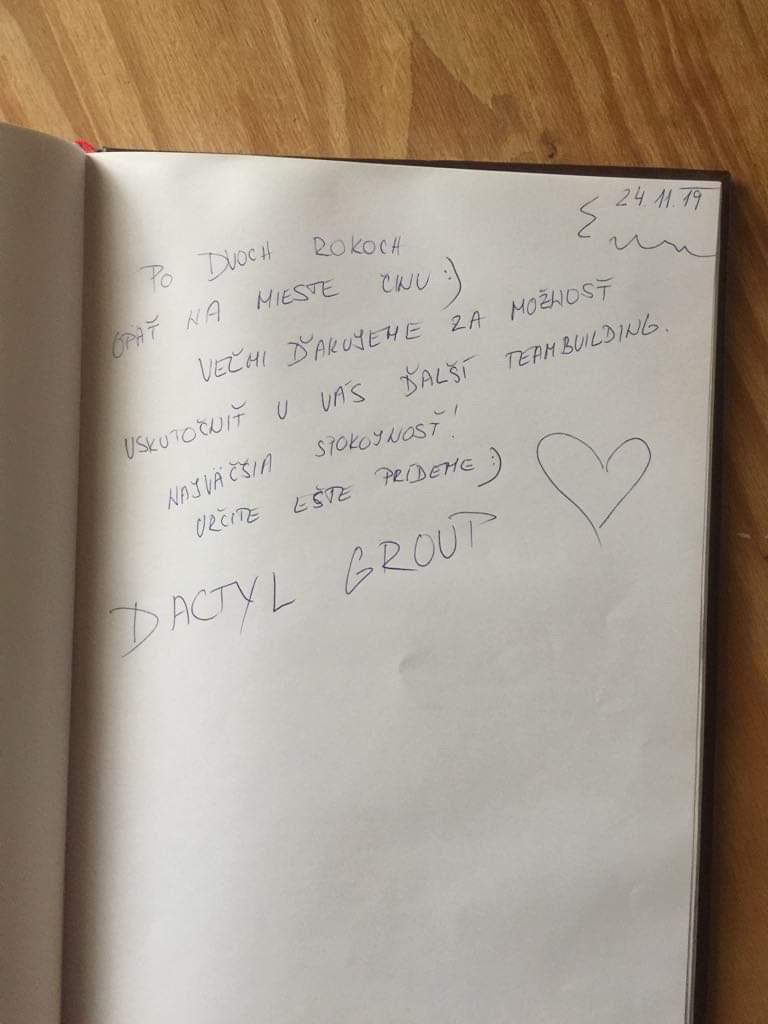 24.11.19
PO DVOCH ROKOCH
OPÄŤ NA MIESTE ČINU :)
VEĽMI ĎAKUJEME ZA MOŽNOSŤ
USKUTOČNIŤ U VÁS ĎALŠÍ TEAMBUILDING.
NAJVÄČŠIA SPOKOJNOSŤ!
URČITE EŠTE PRÍDEME :)
DACTYL GROUP